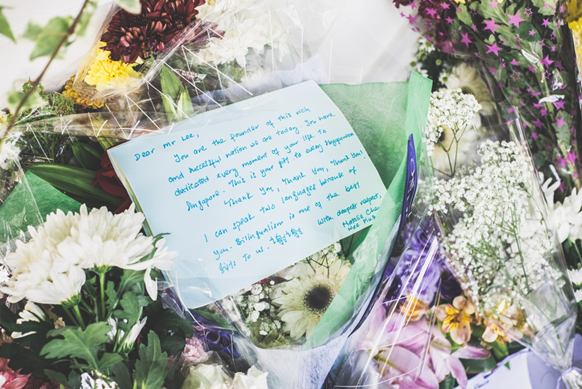 Dear Mr Lee,
You are the founder of this rich
and successful nation of us today. You have
dedicated every moment of your life to
Singapore. This is your gift to every Singaporean
Thank You, Thank You, Thank You!
I can speak two languages because of
you. Bilingualism is one of the best
gifts to us.
With deepest respect,